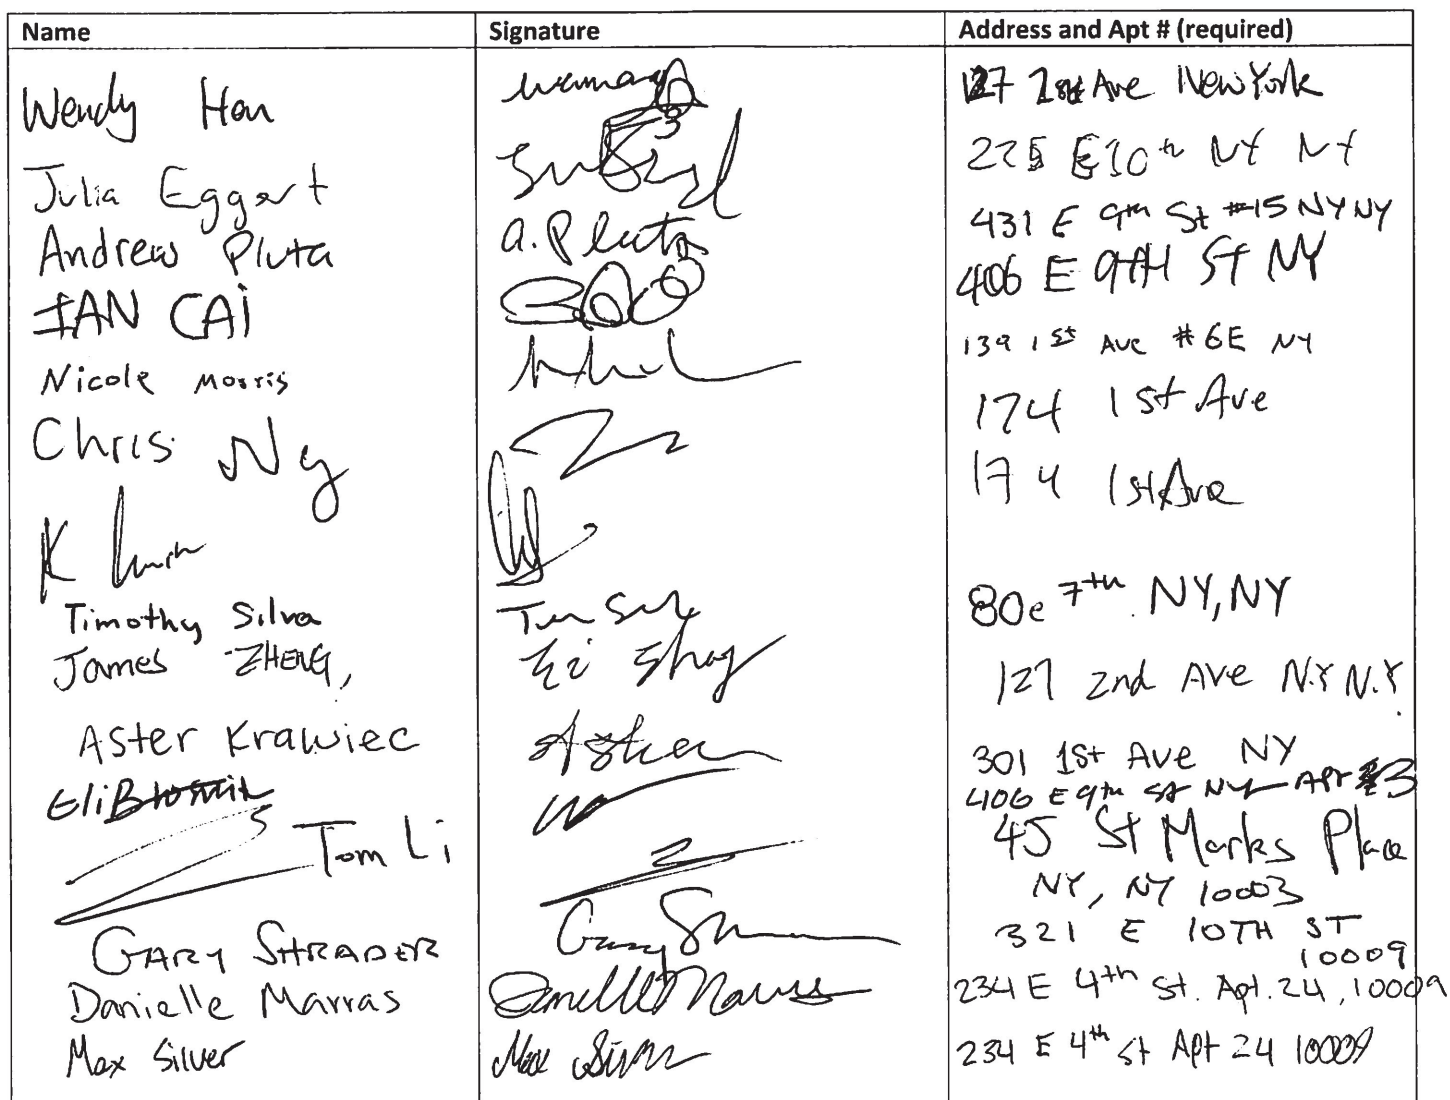 Name Signature Address and Apt # (required)
Wendy Han 127 1st Ave New York
Julia Eggert 225 E 10th NY NY
Andrew Pluta a. Pluta 431 E 9th St #15 NY NY
IAN CAI 406 E 9TH ST NY
Nicole Morris 139 1st Ave #6E NY
Chris Ny 174 1st Ave
K 174 1st Ave
Timothy Silva Tim Silva 80e 7th NY, NY
James ZHENG, 127 2nd Ave N.Y N.Y.
Aster Krawiec Aster 301 1st Ave NY
Eli 406 E 9th St NY Apt 3
Tom Li 45 St Marks Place
NY, NY 10003
GARY SHRADER Gary 321 E 10TH ST
10009
Danielle Marras Danielle Marras 234 E 4th St. Apt. 24, 10009
Max Silver Max Silver 234 E 4th St Apt 24 10009